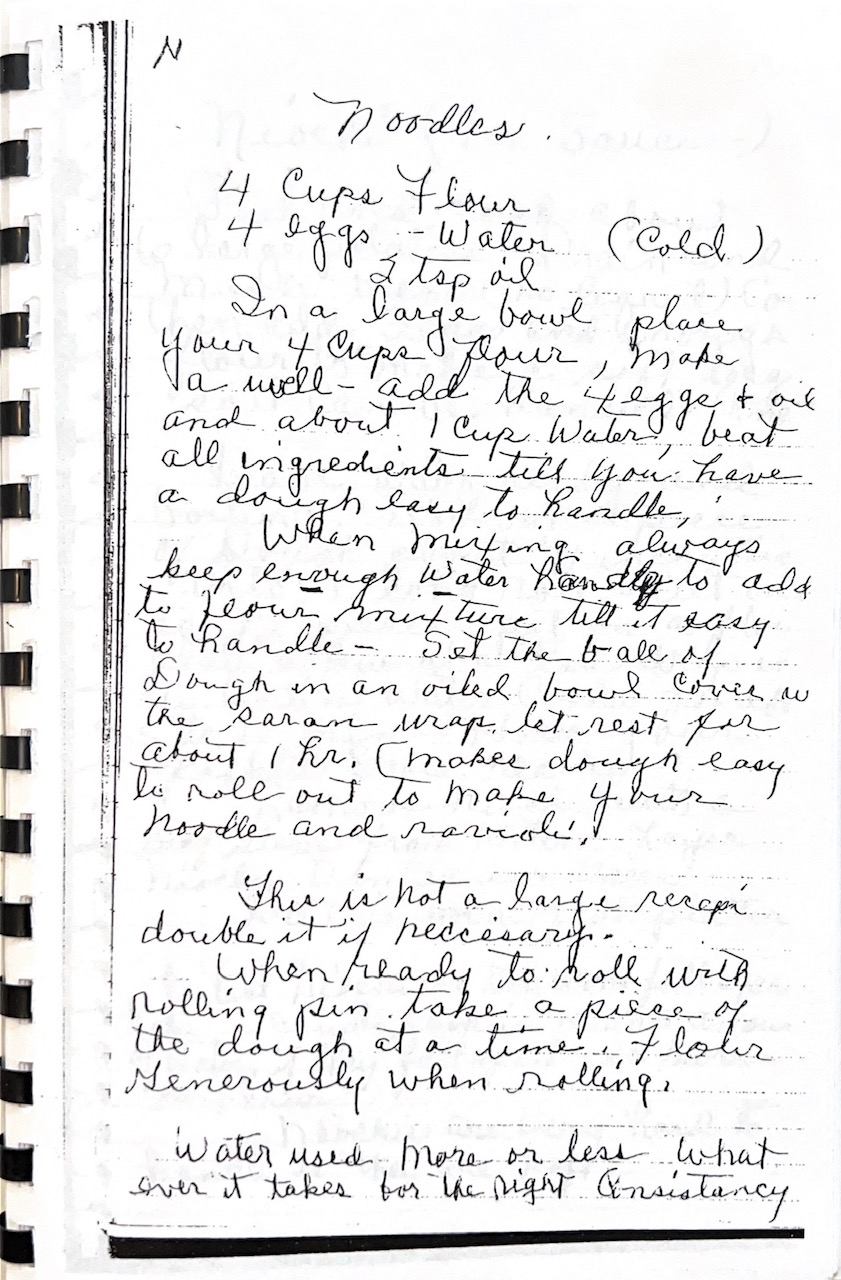 N
Noodles.
4 Cups Flour
4 eggs - Water (Cold)
2 tsp oil
In a large bowl place
your 4 Cups flour, make
a well - add the 4 eggs + oil
and about 1 Cup Water, beat
all ingredients till you have
a dough easy to handle,
When mixing always
keep enough Water handy to add
to flour mixture till it easy
to handle - Set the ball of
Dough in an oiled bowl cover w
the saran wrap. let rest for
about 1 hr. (makes dough easy
to roll out to make your
noodle and ravioli.
This is not a large recepi
double it if neccesary.
When ready to roll with
rolling pin take a piece of
the dough at a time. Flour
Generously when rolling.
Water used more or less what
ever it takes for the right Consistancy